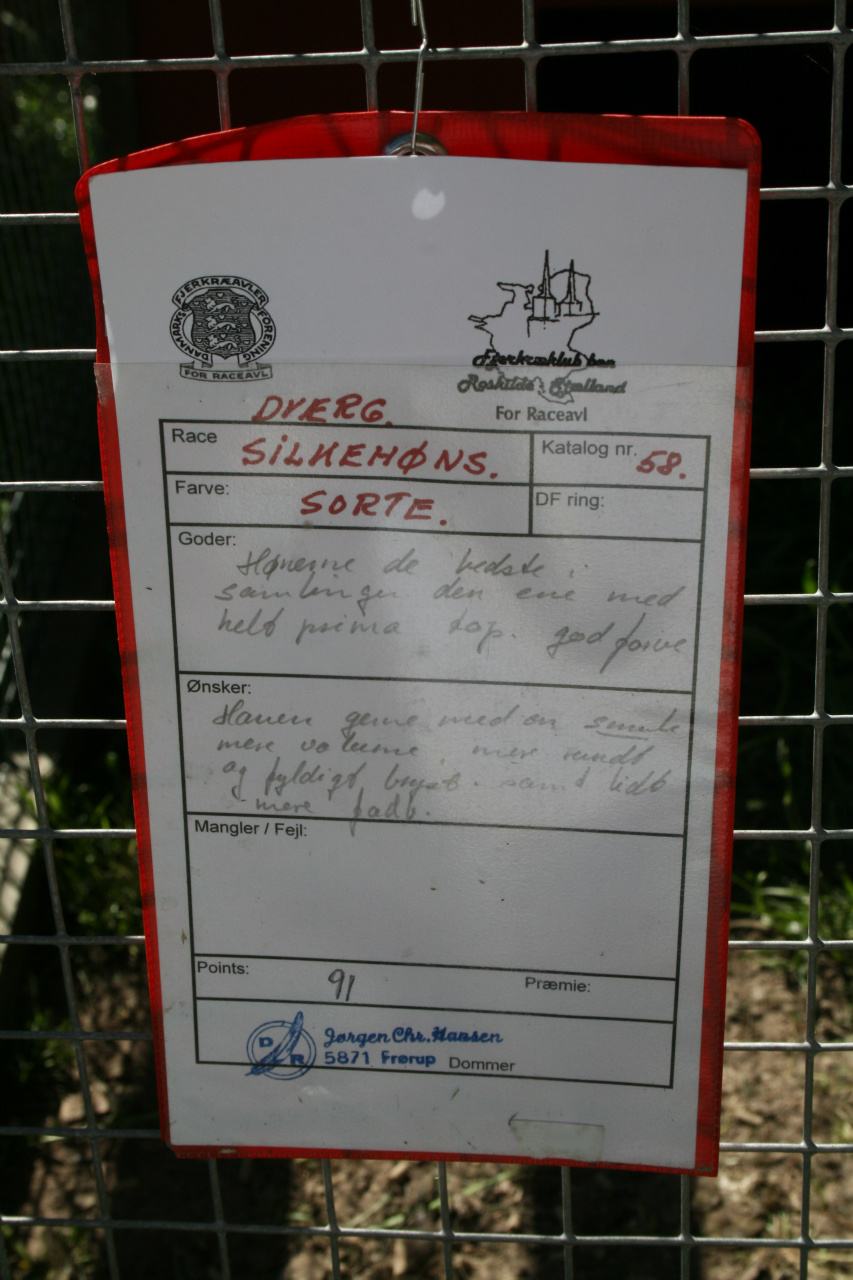 DANMARKS FJERKRÆAVLER FORENING
FOR RACEAVL
Fjerkræklubben
Roskilde, Sjælland
For Raceavl
DVERG.
Race SILKEHØNS. Katalog nr. 58.
Farve: SORTE. DF ring:
Goder:
Hønerne de bedste i
samlingen den ene med
helt prima top. god farve
Ønsker:
Hanen gerne med en smule
mere volume, mere rundt
og fyldigt bryst. samt lidt
mere
Mangler / Fejl:
Points: 91 Præmie:
D R Jørgen Chr. Hansen
5871 Frørup Dommer